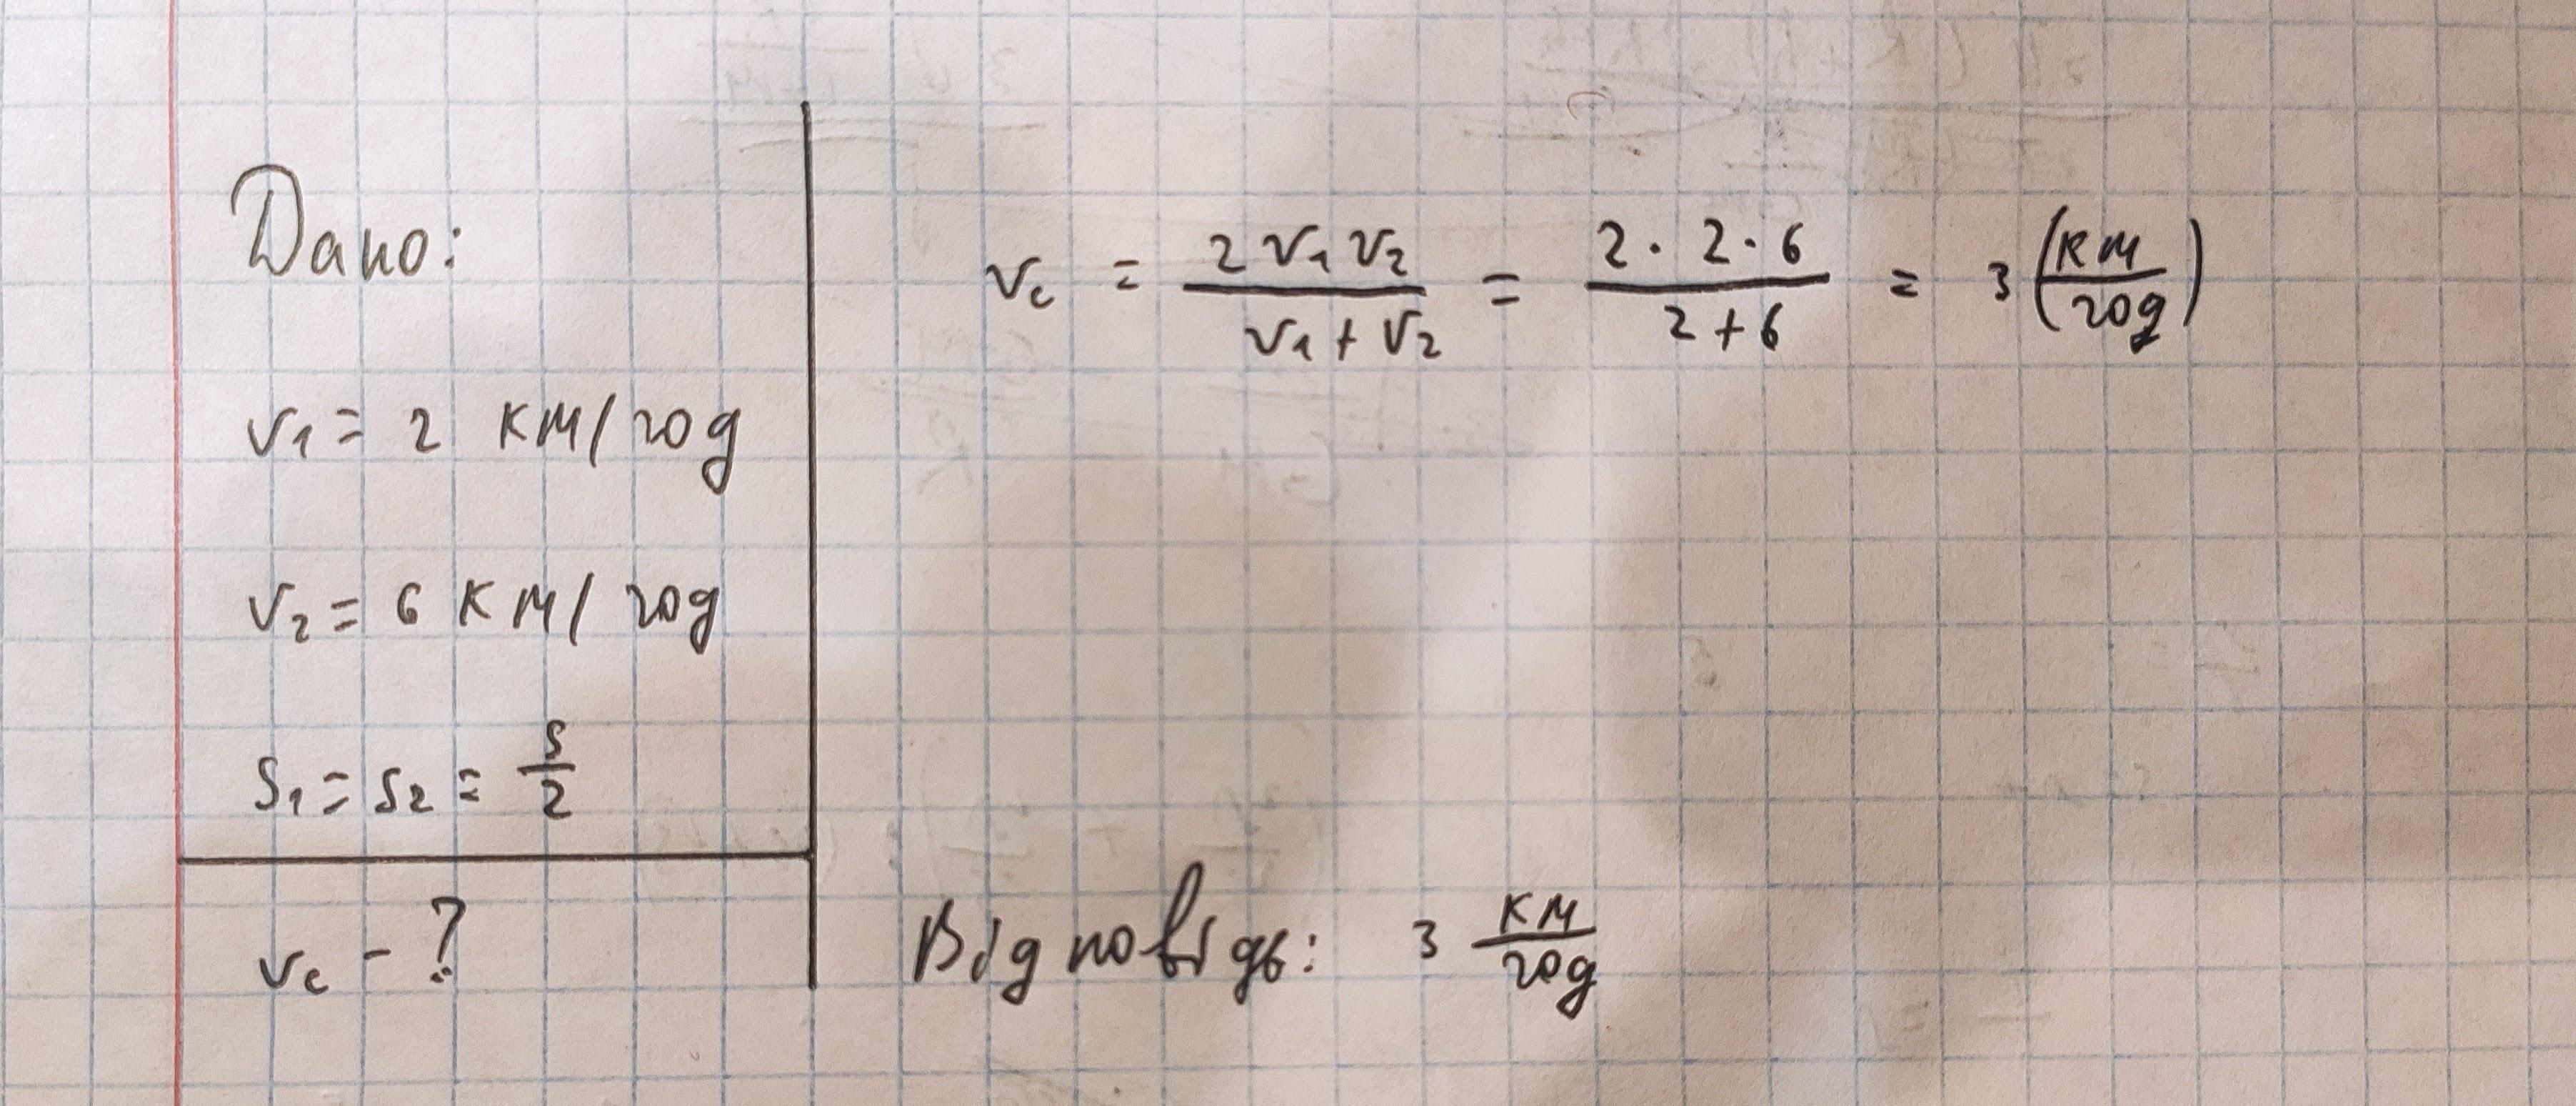 Дано:
v₁ = 2 км/год
v₂ = 6 км/год
s₁ = s₂ = s/2
vc - ?
vc = 2v₁v₂/(v₁ + v₂) = (2 · 2 · 6)/(2 + 6) = 3 (км/год)
Відповідь: 3 км/год